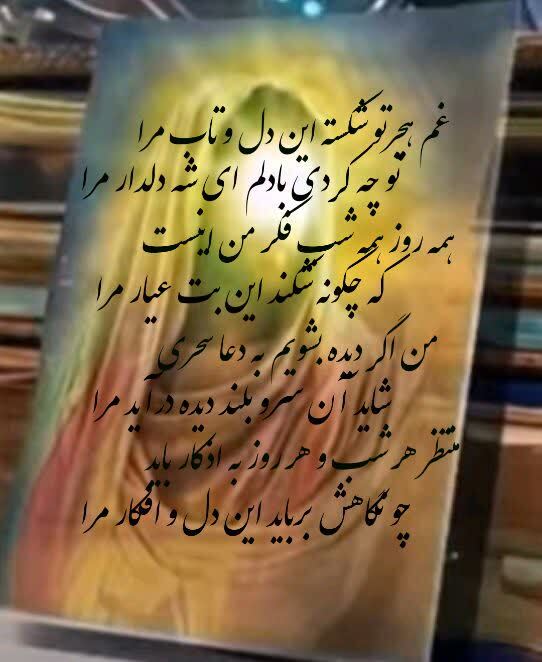 غم هجر تو شکسته این دل و تاب مرا
تو چه کردی بادلم ای شه دلدار مرا
همه روز همه شب فکر من اینست
که چگونه شکند این بت عیار مرا
من اگر دیده بشویم به دعا سحری
شاید آن سرو بلند دیده درآید مرا
منتظر هر شب و هر روز به اذکار باید
چو نگاهش برباید این دل و افکار مرا